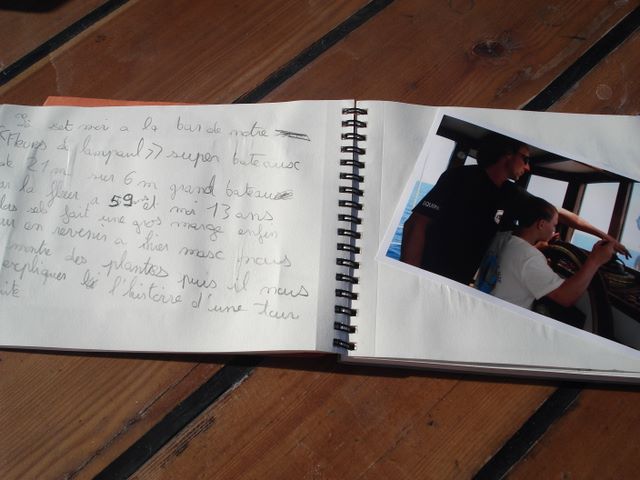 est moi a la bar de notre
<<Fleurs de lampaul>> super bateaux
de 21 m sur 6 m grand bateaux
la fleur a 59 et moi 13 ans
sel fait une gros marge enfin
en revenir a hier masc nous
montre des plantes puis il nous
expliquer l'histoire d'une tour